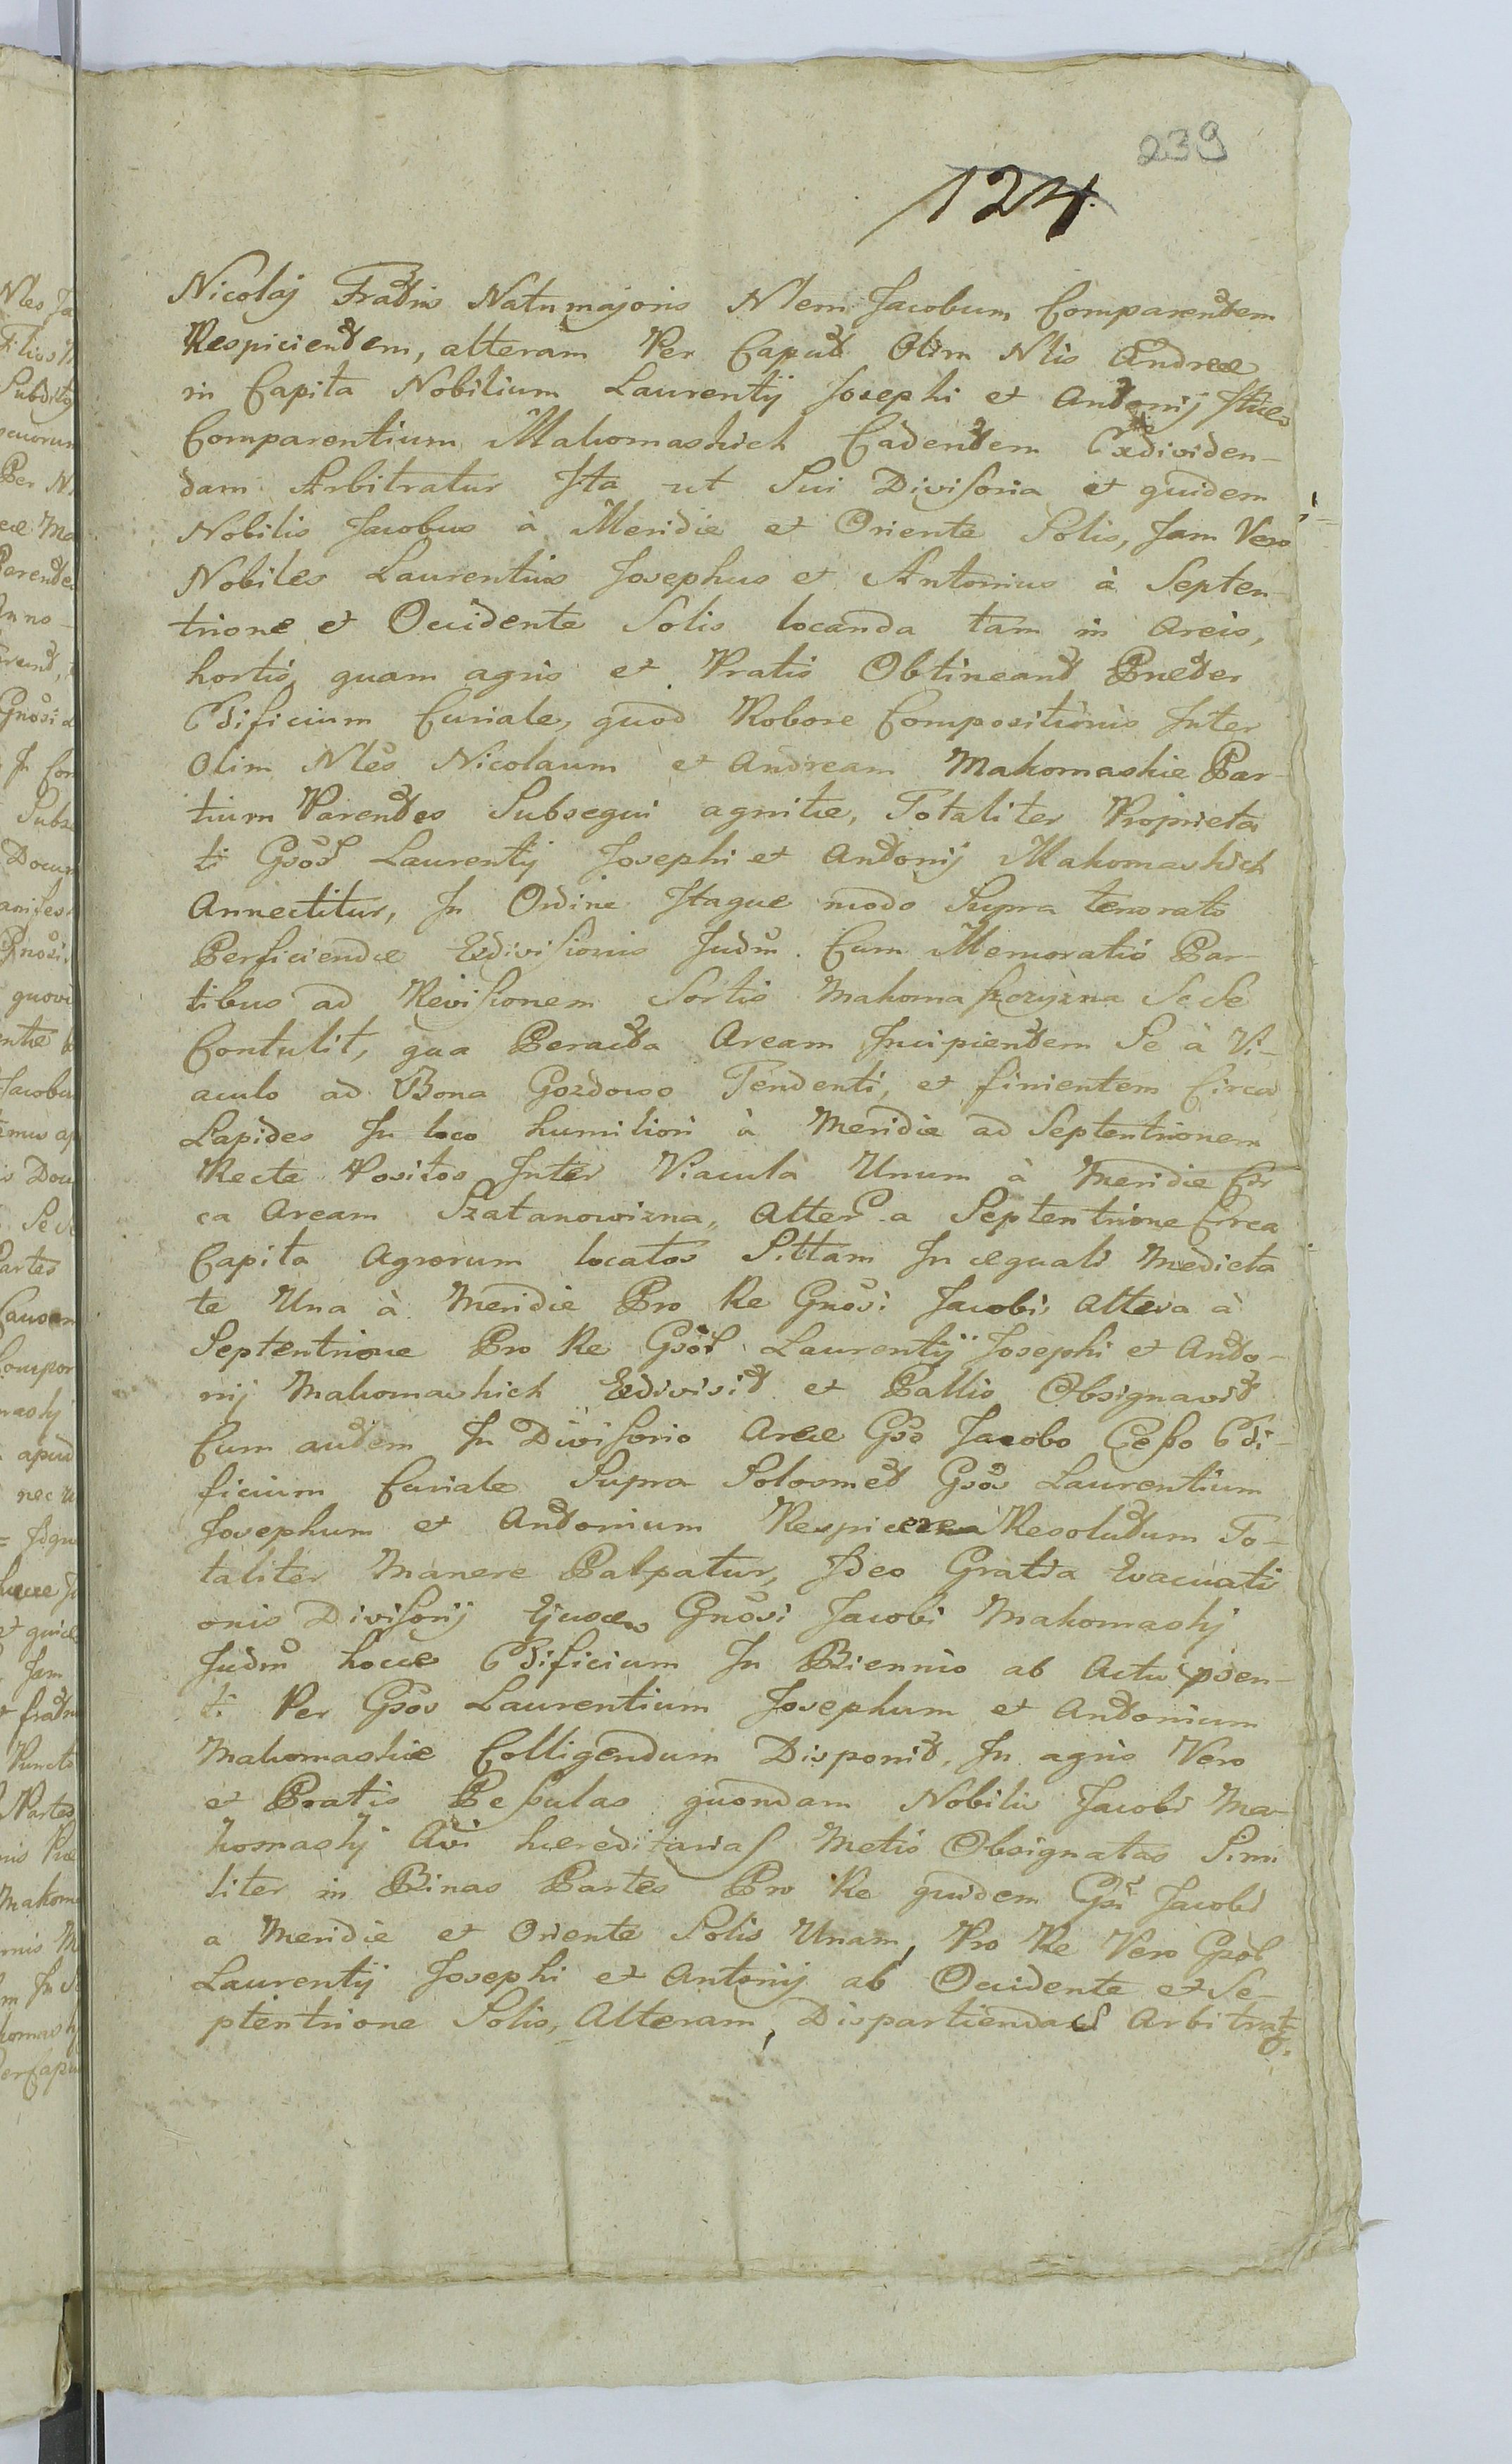 239
124.
Nicolaj Fratris Natu majoris Nlem Jacobum Comparentem
Respicientem, alteram Per Caput Olim Nlis Andreæ
in Capita Nobilium Laurentij Josephi et Antonij
Comparentium Makomaskich Cadentem Exdividen-
dam Arbitratur Ita ut Sui Divisoria et quidem
Nobilis Jacobus à Meridie et Oriente Solis, Jam Vero
Nobiles Laurentius Josephus et Antonius à Septen-
trione et Occidente Solis locanda tam in Areis,
hortis, quam agris et Pratis Obtineant Præter
Edificium Curiale, quod Robore Compositionis Inter
Olim Nles Nicolaum et Andream Makomaskie Par-
tium Parentes Subsequi agnitæ, Totaliter Proprieta
ti Gsör Laurentij Josephi et Antonij Makomaskich
Annectitur, In Ordine Itaque modo Supra tenorato
Perficiendæ Exdivisionis Judm. Cum Memoratis Par-
tibus ad Revisionem Sortis Makomaszczyzna Sese
Contulit, qua Peracta Aream Incipientem Se à Vi-
aculo ad Bona Gozdowo Tendenti, et finientem Circa
Lapides In loco humiliori à Meridie ad Septentrionem
Recte Positos Inter Viacula Unum à Meridie Cir
ca Aream Szatanowizna, Alter a Septentrione Circa
Capita Agrorum locatos Sittam In æquali Medieta
te Una à Meridie Pro Re Gnosi Jacobi, Altera à
Septentrione Pro Re Gsör Laurentij Josephi et Anto-
nij Makomaskich Exdivisit et Pallis Obsignavit
Cum autem In Divisorio Areæ Gso Jacobo Cesso Edi-
ficium Curiale Supra Gsos Laurentium
Josephum et Antonium Respicere Resolutum To-
taliter Manere Palpatur, Ideo Gratia Evacuati
onis Divisorij Ejusdem Gnosi Jacobi Makomaskj
Judm hocce Edificium In Biennio ab Actu psen-
ti Per Gsos Laurentium Josephum et Antonium
Makomaskie Colligendum Disponit, In agris Vero
et Pratis Pessulas quondam Nobilis Jacobi Ma-
komaskj Avi hæreditarias Metis Obsignatas Simi
liter in Binas Partes Pro Re quidem Gsi Jacobi
a Meridie et Oriente Solis Unam, Pro Re Vero Gsör
Laurentij Josephi et Antonij ab Occidente et Se-
ptentrione Solis, Alteram, Dispartiendas Arbitratr.